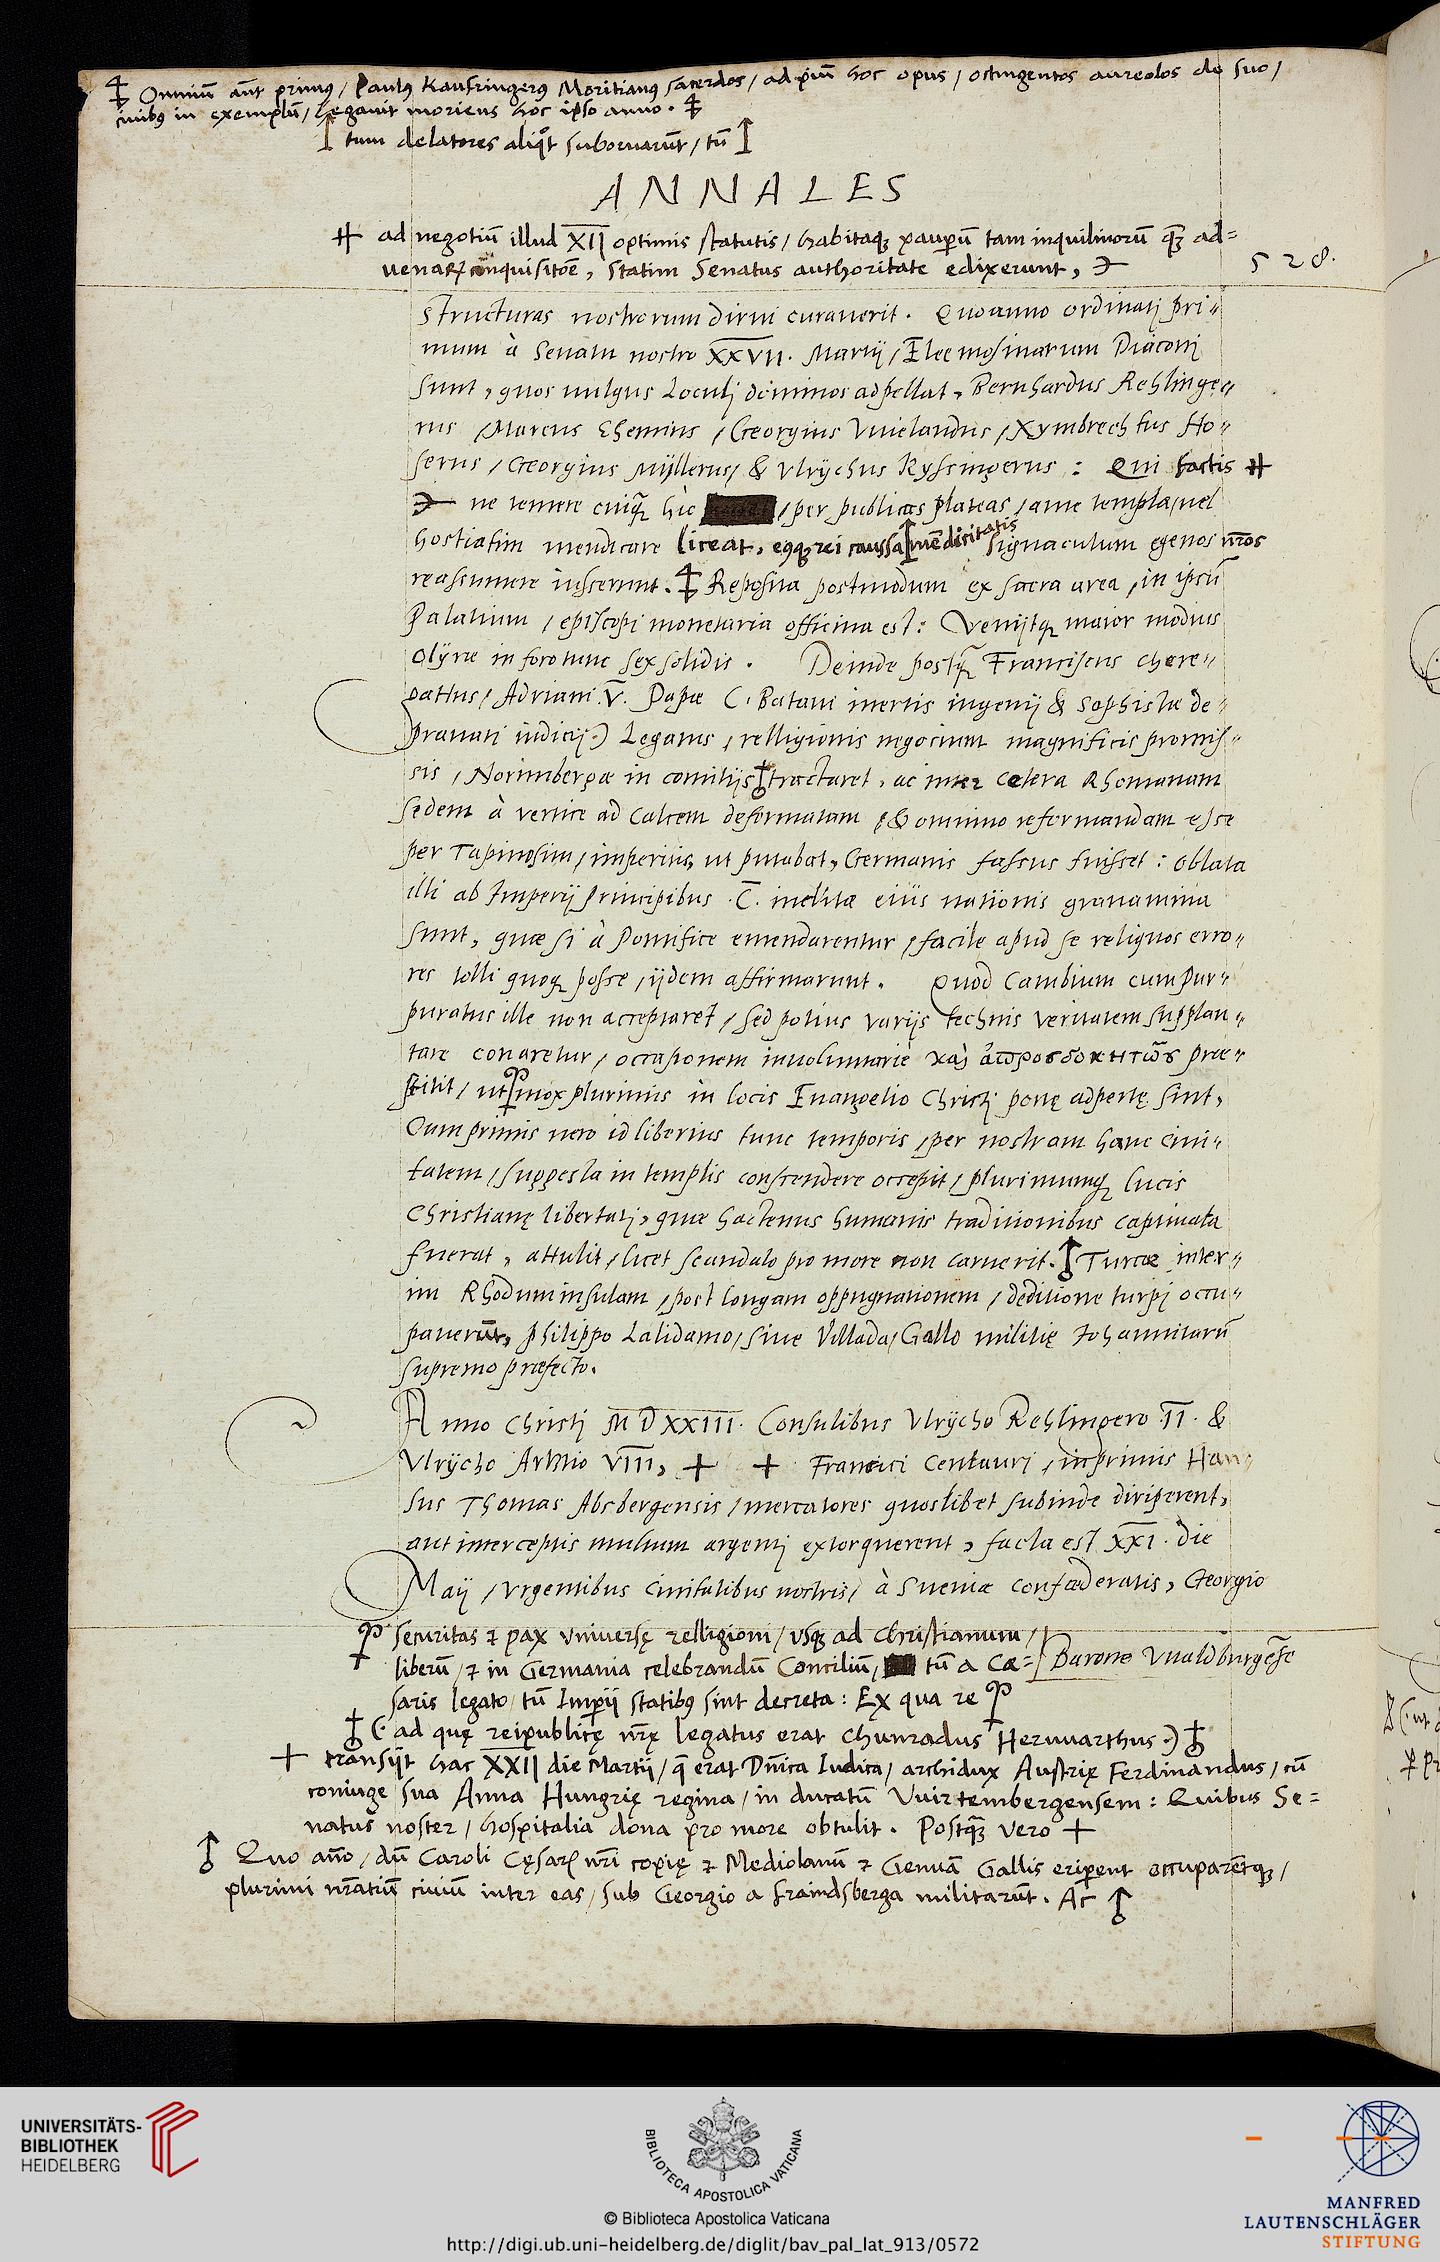 Omniũ aũt primꝰ / Paulꝰ Kaufringerꝰ Moritianꝰ sacerdos / ad piũ hoc opus / octingentos aureolos de suo /
ciuibꝰ in exemplũ / legauit moriens hoc ipso anno .
tum delatores aliqͦt subornarũt / tũ
ANNALES
ad negotiũ illud XII optimis statutis / habitaqꝫ pauperũ tam inquilinorũ qꝫ̃ ad=
uenarꝝ inquisitõe, statim Senatus authoritate edixerunt,
528.
structuras nostrorum dirui curauerit . Quo anno ordinatj pri=
mum à Senatu nostro XXVII. Martij / Eleemosinarum Diaconj
sunt, quos uulgus Loculj dominos adpellat, Bernhardus Rehlinge=
rus / Marcus Ehemius / Georgius Vuielandus / Xymbrechtus Ho=
serus / Georgius Myllerus / & Vlrychus Kyssingerus : Qui factis
ne temere cuiqꝫ̃ hic / per publicas plateas / ante templa / uel
hostiatim mendicare liceat, eiꝰqꝫ rei caussa mẽdicitatis signaculum egenos nr̃os
reassumere iusserunt . Reposita postmodum ex sacra area / in ipsũ
Palatium / episcopi monetaria officina est : Venijtqꝫ maior modius
Olyræ in foro tunc sex solidis . Deinde postqꝫ̃ Franciscus Chere=
pattus / Adriani .V. Papæ (. Bataui inertis ingenij & Sophistæ de=
prauati iudicij .) Legatus / relligionis negocium magnificis promis=
sis / Norimbergæ in comitijs tractaret, ac inter cetera Rhomanam
sedem à vertice ad calcem deformatam / & omnino reformandam esse
per Tapinosim / imperitis, ut putabat, Germanis fassus fuisset : oblata
illi ab Imperij Principibus .C. inclitæ eius nationis grauamina
sunt, quæ si à Pontifice emendarentur / facile apud se reliquos erro=
res tolli quoqꝫ posse / ijdem affirmarunt . Quod Cambium cum Pur=
puratus ille non acceptaret / sed potius varijs technis veritatem supplan=
tare conaretur / occasionem inuoluntariè καὶ ἀπροσδοκητῶς præ=
stitit / ut mox plurimis in locis Euangelio Christj portę adpertę sint,
Cum primis uero id liberius tunc temporis / per nostram hanc ciui=
tatem / suggesta in templis conscendere occepit / plurimumqꝫ lucis
Christianę libertatj, quæ hactenus humanis traditionibus captiuata
fuerat, attulit / licet scandalo pro more non caruerit . Turcæ inter=
im Rhodum insulam / post longam oppugnationem / deditione turpj occu=
pauerũt, Philippo Lalidamo / siue Villada / Gallo militię Johannitarũ
supremo præfecto .
Anno Christj MDXXIII . Consulibus Vlrycho Rehlingero .II. &
Vlrycho Artzio VIII, Francici Centaurj / inprimis Han=
sus Thomas Absbergensis / mercatores quoslibet subinde diriperent,
aut interceptis multum argentj extorquerent, facta est XXI . die
Maij / vrgentibus Ciuitatibus nostris / à Sueuiæ confœderatis, Georgio
Barone Vualdburgẽse
securitas ⁊ pax vniuersę relligioni / vsqꝫ ad christianum /
liberũ / ⁊ in Germania celebrandũ Concilium / tũ a Cæ=
saris legato / tũ Imperij statibꝰ sint decreta : Ex qua re
(. ad quę reipublicę nr̃ę legatus erat Chunradus Heruuarthus .)
transijt hac XXII die Martij / q̃ erat Dñica Iudica / archidux Austrię Ferdinandus / cũ
coniuge sua Anna Hungrię regina / in ducatũ Vuirtembergensem : Quibus Se=
natus noster / hospitalia dona pro more obtulit . Postqꝫ̃ vero
Quo año / dũ Caroli Cęsarꝭ nr̃i copię ⁊ Mediolanũ ⁊ Genuã Gallis eriperent occuparẽtqꝫ /
plurimi nr̃atiũ ciuiũ inter eas / sub Georgio a Fraindsberga militarũt . Ac
UNIVERSITÄTS-
BIBLIOTHEK
HEIDELBERG
BIBLIOTECA APOSTOLICA VATICANA
© Biblioteca Apostolica Vaticana
http://digi.ub.uni-heidelberg.de/diglit/bav_pal_lat_913/0572
MANFRED
LAUTENSCHLÄGER
STIFTUNG